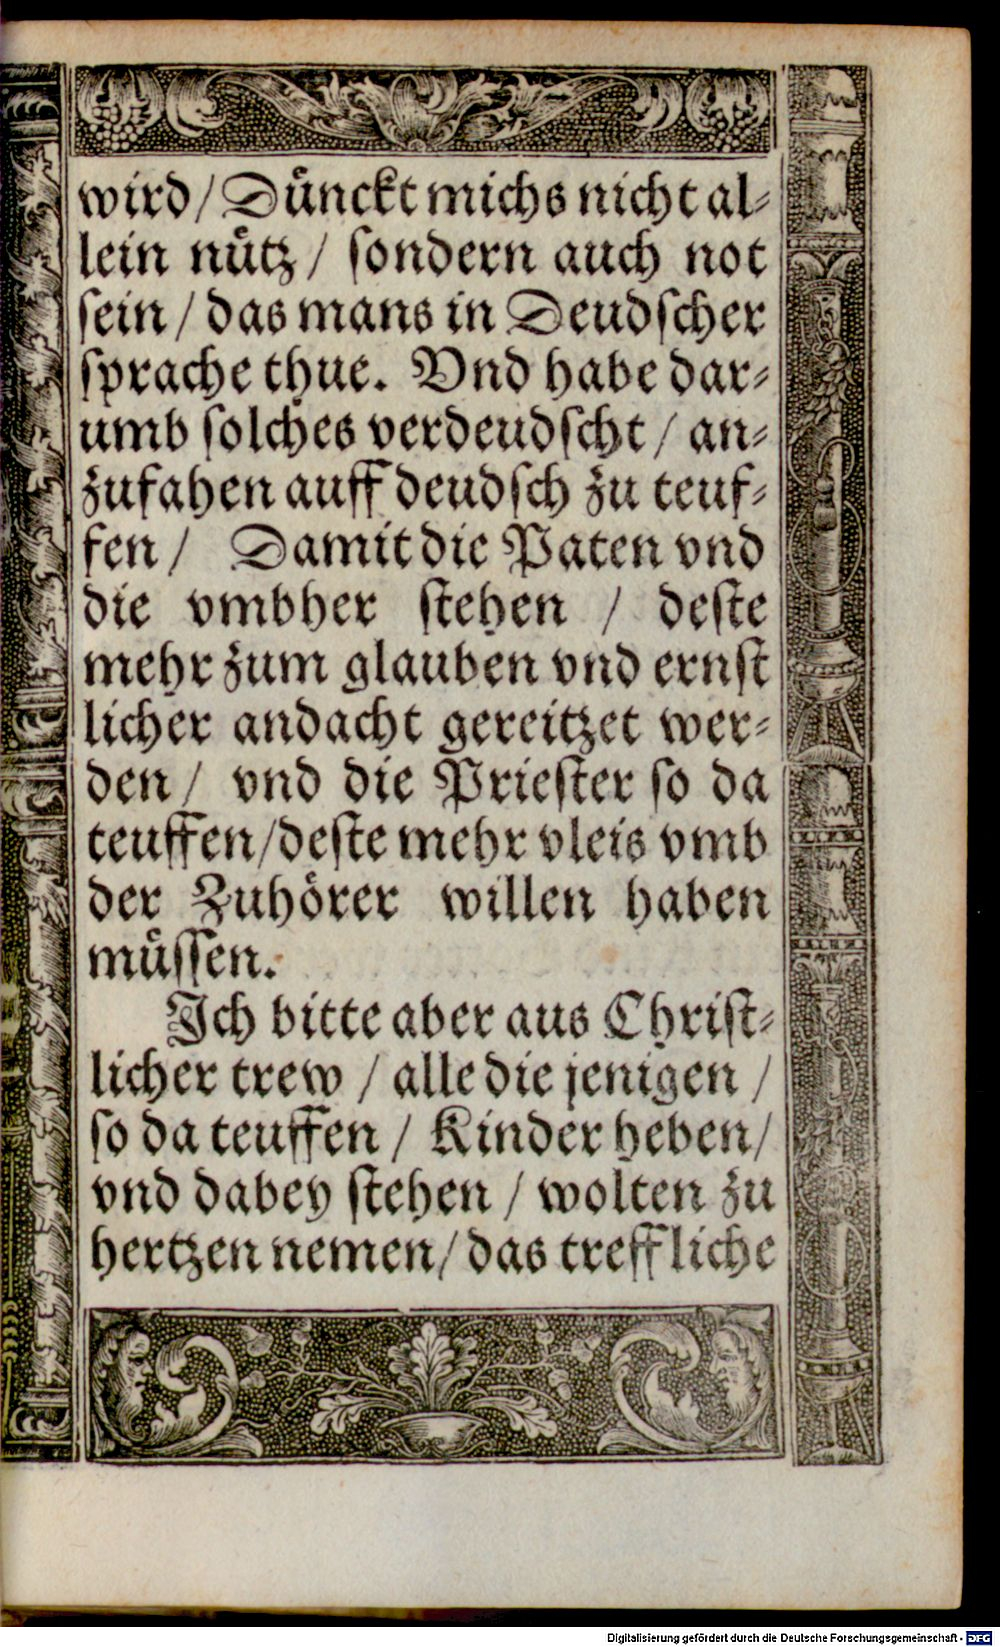 wird/ Dünckt michs nicht al-
lein nütz/ sondern auch not
sein/ das mans in Deudscher
sprache thue. Vnd habe dar-
umb solches verdeudscht/ an-
zufahen auff deudsch zu teuf-
fen/ Damit die Paten vnd
die vmbher stehen / deste
mehr zum glauben vnd ernst
licher andacht gereitzet wer-
den/ vnd die Priester so da
teuffen/deste mehr vleis vmb
der Zuhörer willen haben
müssen.
Ich bitte aber aus Christ-
licher trew / alle die jenigen /
so da teuffen / Kinder heben/
vnd dabey stehen / wolten zu
hertzen nemen/ das treffliche
Digitalisierung gefördert durch die Deutsche Forschungsgemeinschaft - DFG